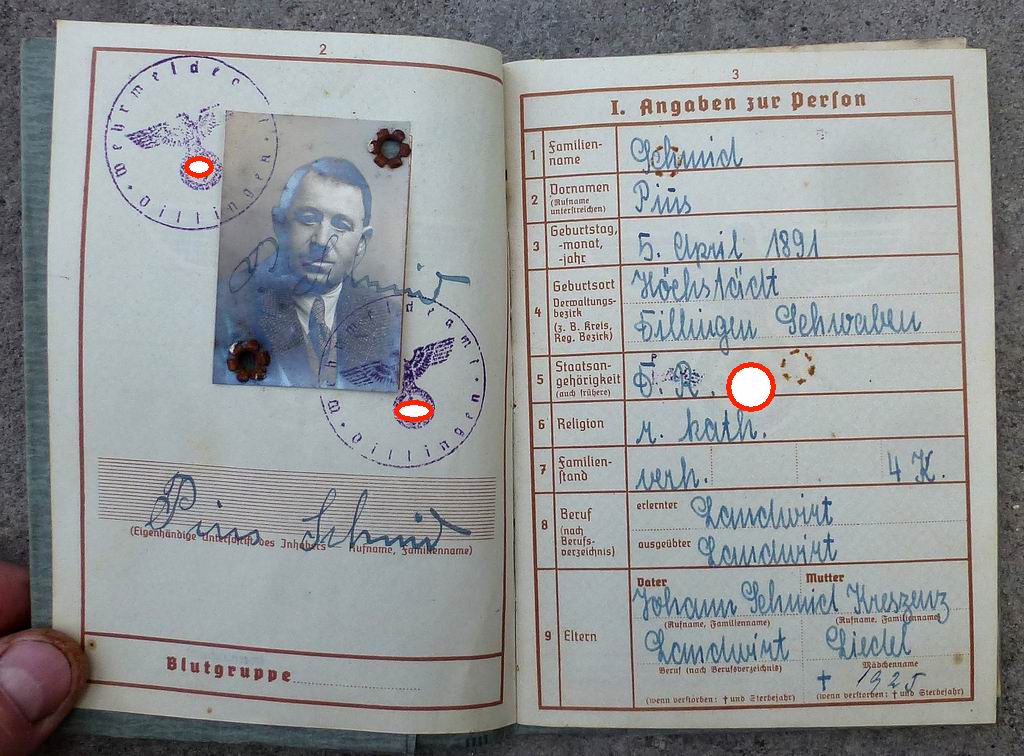 2
Wehrmeldeamt
Dillingen
P. Schmid
Wehrmeldeamt
Dillingen
Pius Schmid
(Eigenhändige Unterschrift des Inhabers Rufname, Familienname)
Blutgruppe
3
I. Angaben zur Person
1 Familienname Schmid
2 Vornamen (Rufname unterstreichen) Pius
3 Geburtstag, -monat, -jahr 5. April 1891
4 Geburtsort Höchstädt
Verwaltungsbezirk (z. B. Kreis, Reg. Bezirk) Dillingen Schwaben
5 Staatsangehörigkeit (auch frühere) D. R.
6 Religion r. kath.
7 Familienstand verh. 4 K.
8 Beruf (nach Berufsverzeichnis) erlernter Landwirt
ausgeübter Landwirt
9 Eltern
Vater Mutter
Johann Schmid Kreszenz
(Rufname, Familienname) (Rufname, Familienname)
Landwirt Liedel
Beruf (nach Berufsverzeichnis) Mädchenname
† 1925
(wenn verstorben: † und Sterbejahr) (wenn verstorben: † und Sterbejahr)